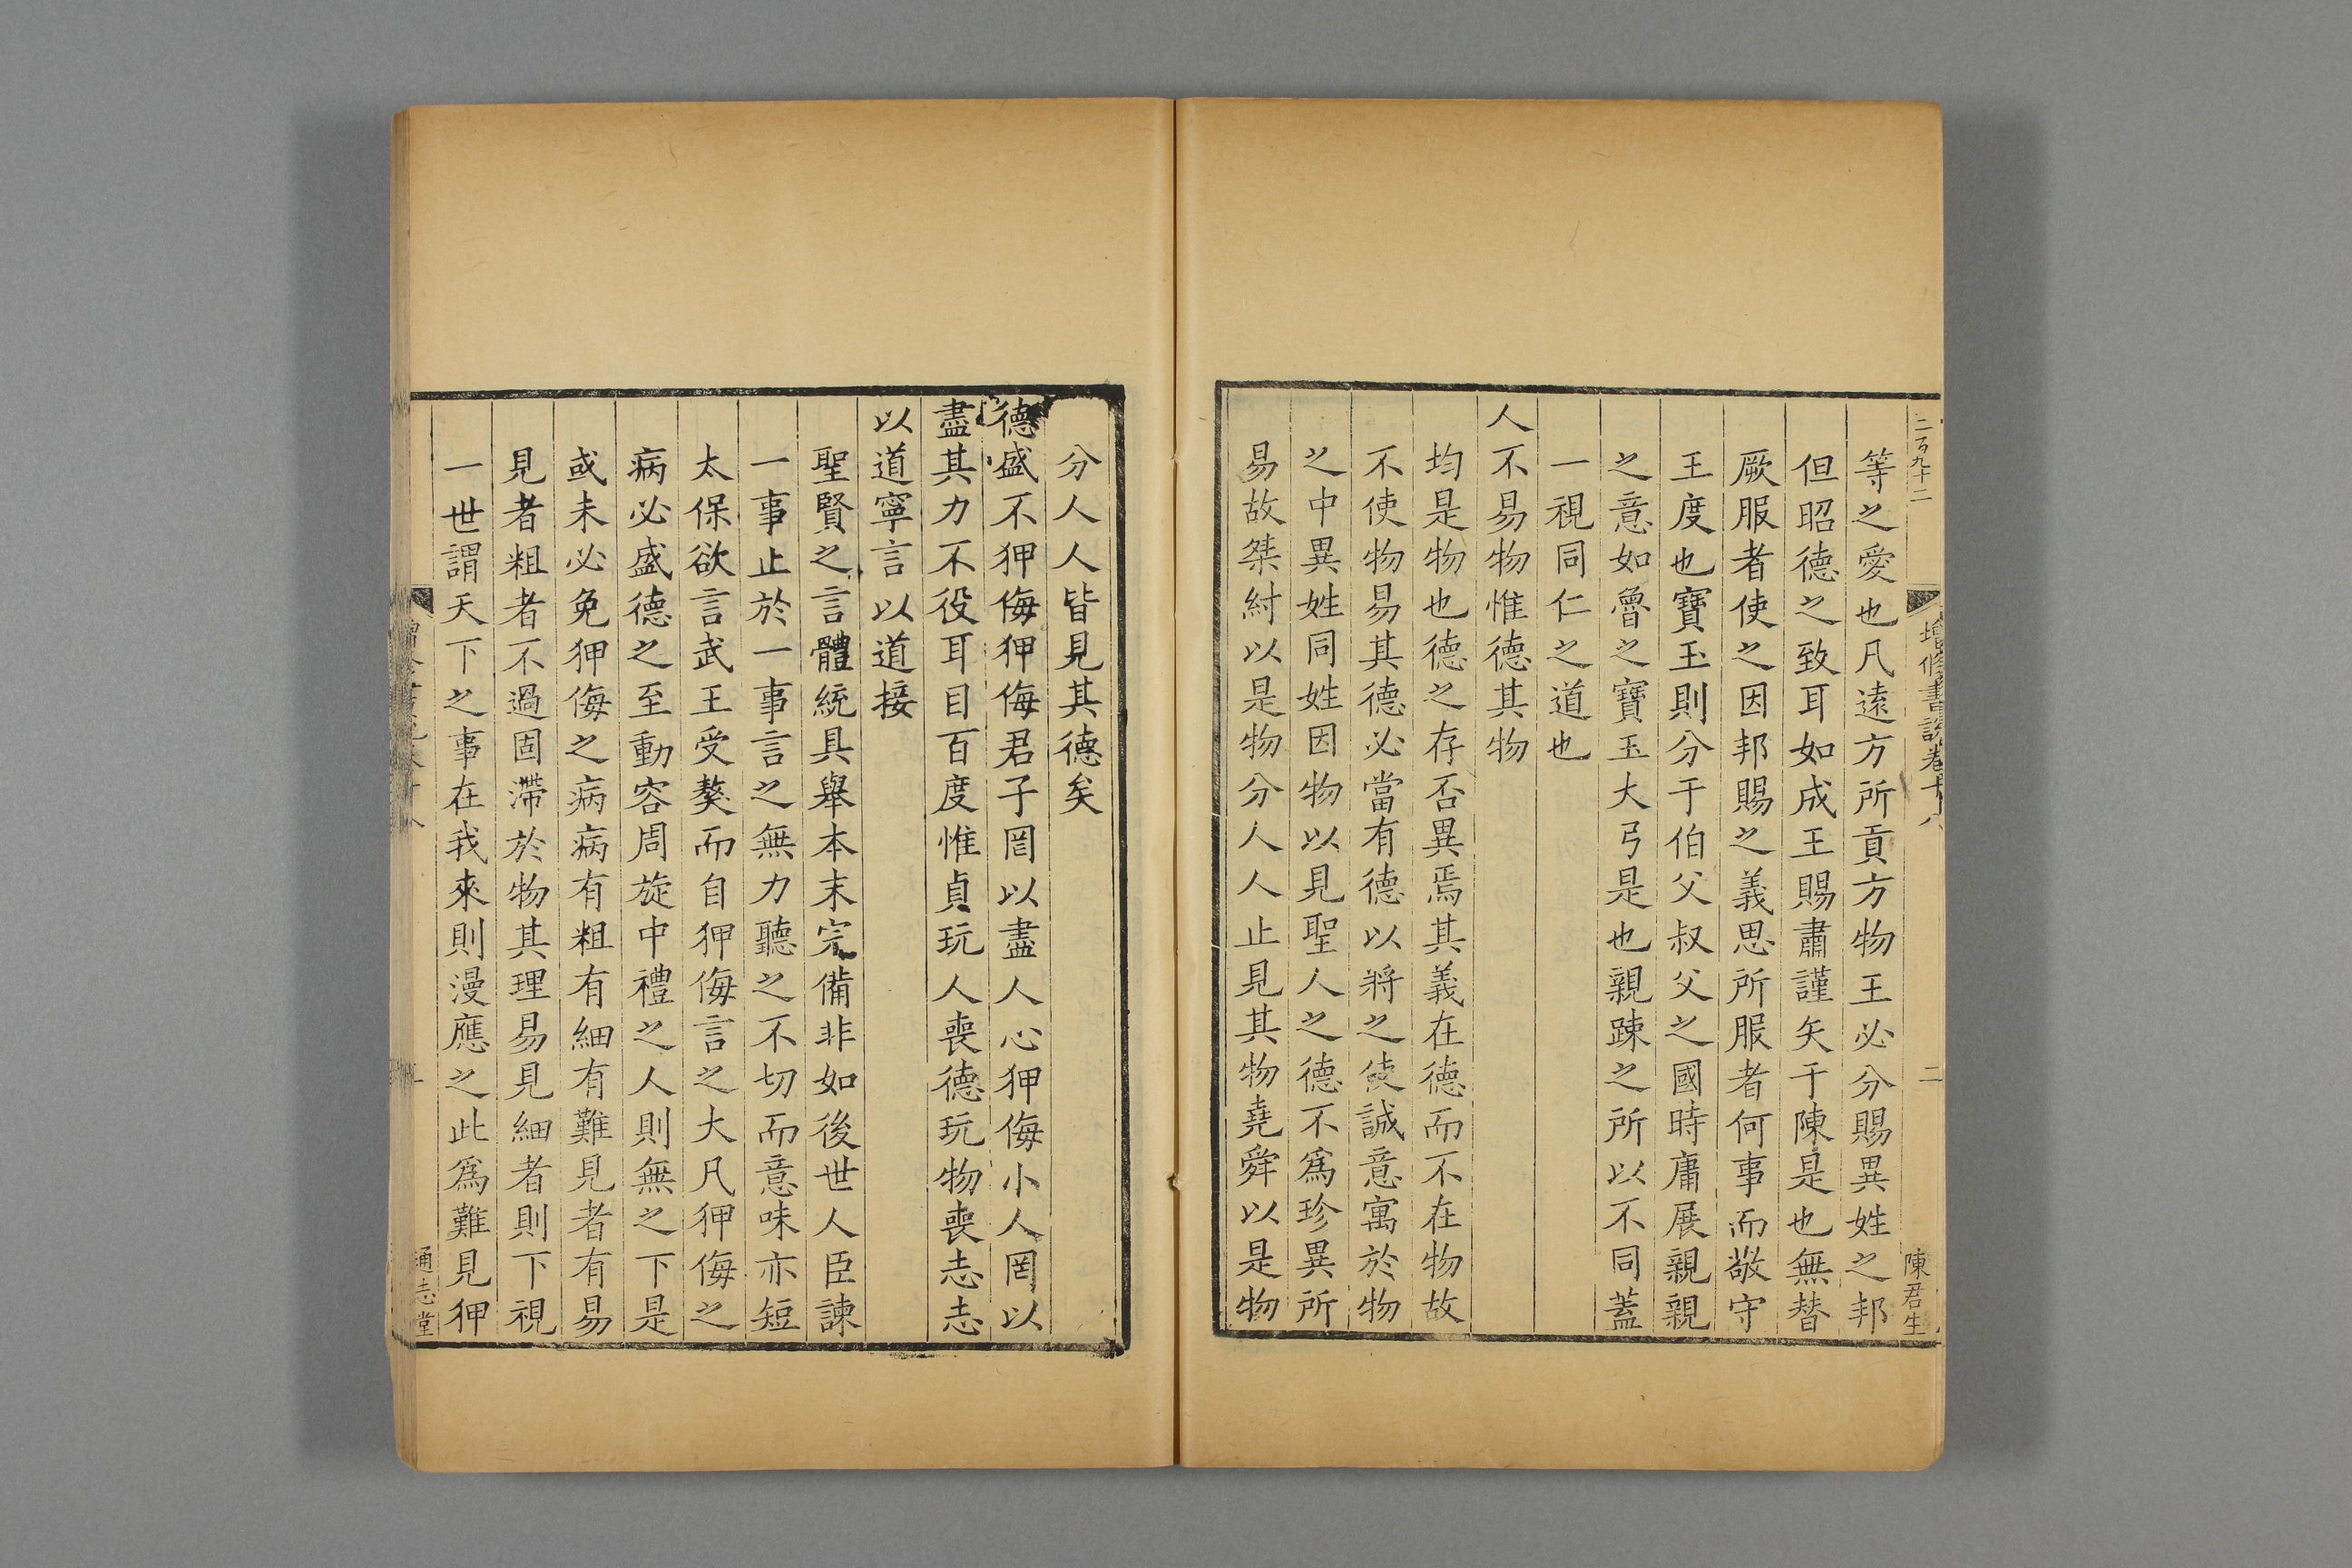 二百九十二
增修書說卷十八
二
陳君生
等之愛也凡遠方所貢方物王必分賜異姓之邦
但昭德之致耳如成王賜肅謹矢于陳是也無替
厥服者使之因邦賜之義思所服者何事而敬守
王度也寶玉則分于伯父叔父之國時庸展親親
之意如魯之寶玉大弓是也親踈之所以不同蓋
一視同仁之道也
人不易物惟德其物
均是物也德之存否異焉其義在德而不在物故
不使物易其德必當有德以將之使誠意寓於物
之中異姓同姓因物以見聖人之德不爲珍異所
易故桀紂以是物分人人止見其物堯舜以是物
分人人皆見其德矣
德盛不狎侮狎侮君子罔以盡人心狎侮小人罔以
盡其力不役耳目百度惟貞玩人喪德玩物喪志志
以道寧言以道接
聖賢之言體統具舉本末完備非如後世人臣諫
一事止於一事言之無力聽之不切而意味亦短
太保欲言武王受獒而自狎侮言之大凡狎侮之
病必盛德之至動容周旋中禮之人則無之下是
或未必免狎侮之病病有粗有細有難見者有易
見者粗者不過固滯於物其理易見細者則下視
一世謂天下之事在我來則漫應之此爲難見狎
通志堂